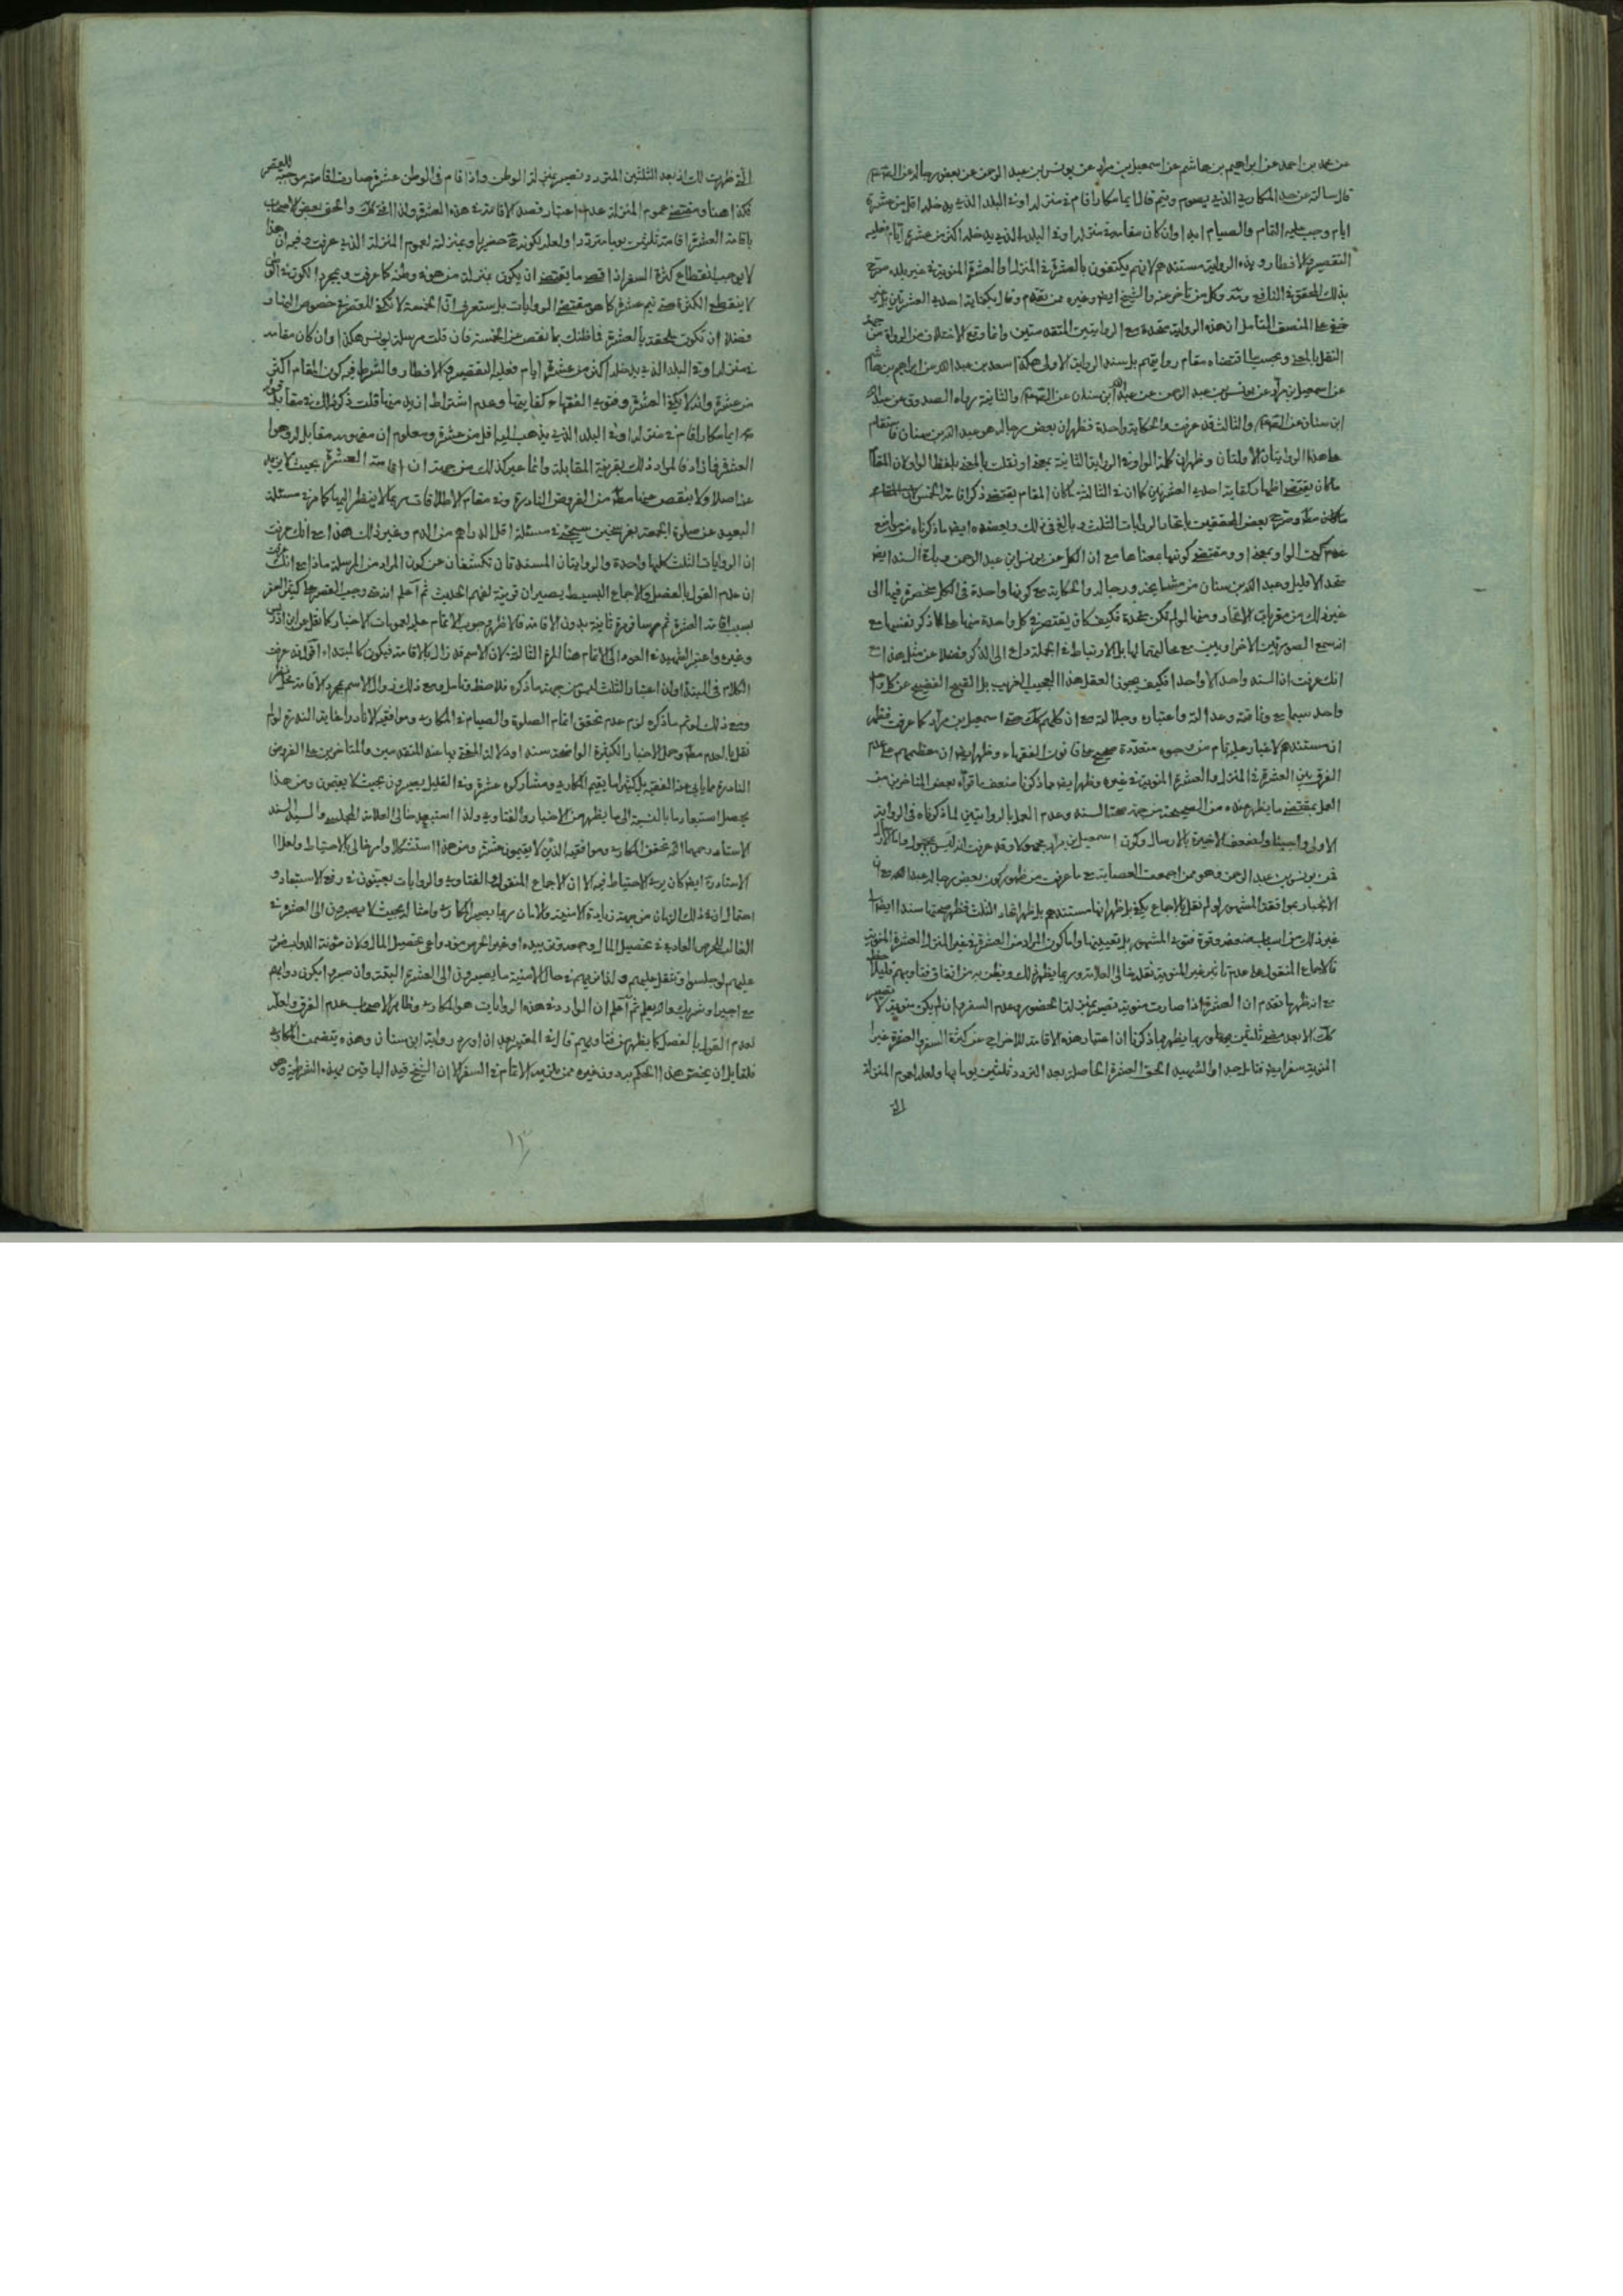 عن محمد بن احمد عن ابراهيم بن هاشم عن اسمعيل بن مرار عن يونس بن عبد الرحمن عن بعض رجاله عن
قال سالته عن حد المكارى الذى يصوم ويتم قال ايما مكار اقام فى منزله او فى البلد الذى يدخله اقل من عشرة
ايام وجب عليه التمام والصيام ابدا وان كان مقامه فى منزله او فى البلد الذى يدخله اكثر من عشرة ايام فعليه
التقصير والافطار وهذه الرواية مستندهم لانهم يكتفون بالعشرة فى المنزل او العشرة المنوية فى غير بلده صرح
بذلك المحقق فى النافع وكل من تأخر عنه والشيخ ايضا وغيره ممن تقدم
المنصف المتأمل ان هذه الرواية متحدة مع الروايتين المتقدمتين وانما وقع الاختلاف من الرواة من جهة
النقل بالمعنى وبحسب ما اقتضاه مقام روايتهم بل سند الرواية الاولى هكذا سعد بن عبد الله عن ابراهيم بن هاشم
عن اسمعيل بن مرار عن يونس بن عبد الرحمن عن عبد الله بن سنان عن والثانية رواه الصدوق عن عبد الله
ابن سنان عن والثالث قد عرفت والحكاية واحدة فظهر ان بعض رجاله هو عبد الله بن سنان
هذه الروايتان الاولتان وظهر ان كلمة الواو فى الرواية الثانية بمعنى او نقلت بالمعنى بلفظ الواو لان المقام
ما كان يقتضى اظهار كفاية احدى العشرتين كما ان فى الثالثة ما كان المقام يقتضى ذكر اقامة الخمس
وصرح بعض المحققين باتحاد الروايات الثلث وبالغ فى ذلك ويعضده ايضا ما ذكرناه من مانع
عدم كون الواو بمعنى او ومقتضى كونها بمعناها مع ان الكل عن يونس بن عبد الرحمن
وعبد الله بن سنان من مشايخه ورجاله والحكاية مع كونها واحدة فى الكل منحصرة فيها الى
غير ذلك من مقربات الاتحاد ومنها لو لم تكن متحدة فكيف كان يقتصر فى كل واحدة منها على ما ذكر فيها مع
انه سمع الصورتين الاخراويين مع
انك عرفت ان السند واحد الا واحدا فكيف يجوز العقل هذا العجيب الغريب بل القبيح الفضيح عن كل واحد
واحد سيما مع وثاقته وعدالته واعتباره وجلالته مع ان كلهم كك حتى اسمعيل بن مرار كما عرفت فظهر
ان مستندهم لا غبار عليه تام من وجوه متعددة صحيح على قانون الفقهاء وظهر ايضا ان معظمهم على عدم
الفرق بين العشرة فى المنزل والعشرة المنوية فى غيره وظهر ايضا مما ذكرنا ضعف ما قواه بعض المتاخرين من
العمل بمقتضى ما يظهر عنده من الصحيحة من جهة صحة السند وعدم العمل بالروايتين لما ذكرناه فى الرواية
الاولى ولضعف الاخيرة بالارسال وكون اسمعيل بن مرار مجهولا وقد عرفت انه ليس بمجهول واما الارسال
فمن يونس بن عبد الرحمن وهو ممن اجمعت العصابة مع ما عرفت من ظهور كون بعض رجاله عبد الله مع ان
الانجبار بموافقة المشهور لو لم نقل بالاجماع يكفى بل ظهر انها مستندهم بل ظهر اتحاد الثلث فظهر صحتها سندا ايضا الى
غير ذلك من اسباب ضعفه وقوة فتوى المشهور بل تعيينها واما كون المراد من العشرة فى غير المنزل العشرة المنوية
فللاجماع المنقول على عدم تأثير غير المنوية نقله خالى العلامة وربما يظهر ذلك ويظهر من اتفاق فتاويهم
مع انه ظهر ما تقدم ان العشرة اذا صارت منوية تصير بمنزلة الحضور وعدم السفر وان لم يكن منوية لا تصير
كك الا بعد مضى ثلثين يوما وربما يظهر مما ذكرنا ان اعتبار هذه الاقامة للاخراج عن كثرة السفر والعشرة غير
المنوية سفر ايضا فتأمل جدا والشهيد الحق العشرة الحاصلة بعد التردد ثلثين يوما بها ولعله لعموم المنزلة
التى
التى ظهرت لك اذ بعد الثلثين المتردد فيه يصير بمنزلة الوطن واذا اقام فى الوطن عشرة صارت اقامته موجبة للقصر
فكذا هنا ومقتضى عموم المنزلة عدم اعتبار قصد الاقامة فى هذه العشرة والحق بعض الاصحاب
باقامة العشرة اقامة ثلثين يوما مترددا ولعله لكونه حضريا وبمنزلة لعموم المنزلة الذى عرفت وفيه ان هذا
لا يوجب انقطاع كثرة السفر اذ اقصى ما يقتضى ان يكون بمنزلة من هو فى وطنه كما عرفت وبمجرد الكون فى الوطن
لا ينقطع الكثرة حتى يتم عشرة كما هو مقتضى الروايات بل ستعرف ان الخمسة لا تكفى للقصر فى خصوص النهار
فضلا ان تكون ملحقة بالعشرة فما ظنك بما نقص عن الخمسة فان قلت مرسلة يونس هكذا وان كان مقامه
فى منزله او فى البلد الذى يدخله اكثر من عشرة ايام فعليه التقصير والافطار والشرط فيه كون المقام اكثر
من عشرة وانه لا يكفى العشرة وفتوى الفقهاء كفايتها وعدم اشتراط ازيد منها قلت ذكر ذلك فى مقابل قوله
ايما مكار اقام فى منزله او فى البلد الذى يذهب اليه اقل من عشرة ومعلوم ان مفهومه مقابل لمفهوم
العشرة فما زاد فالمراد ذلك بقرينة المقابلة وانما عبر كذلك من جهة ان اقامة العشرة بحيث لا يزيد
عنها اصلا ولا ينقص عنها مطلقا من الفروض النادرة وفى مقام الاطلاقات ربما لا ينظر اليها كما مر فى مسئلة
البعيد عن صلوة الجمعة بفرسخين سيجئ فى مسئلة اقل الدراهم من الدم وغير ذلك هذا مع انك عرفت
ان الروايات الثلث كلها واحدة والروايتان المسندتان تكشفان عن كون المراد من المرسلة ماذا مع انك عرفت
ان عدم القول بالفصل والاجماع البسيط يصيران قرينة لفهم الحديث ثم اعلم انه متى وجب القصر على كثير السفر
بسبب اقامة العشرة ثم سافر مرة ثانية بدون الاقامة فالاظهر وجوب الاتمام عليه لعمومات الاخبار كما نقل عن ابن ادريس
وغيره واعتبر الشهيد فى العود الى الاتمام هنا المرة الثالثة لان الاسم قد زال بالاقامة فيكون كالمبتداء اقول قد عرفت
الكلام فى المبتدأ وان اعتبار الثلث ليس من جهة ما ذكره فلاحظ وتأمل ومع ذلك زوال الاسم بمجرد الاقامة محل نظر
ومع ذلك لو تم ما ذكره لزم عدم تحقق اتمام الصلوة والصيام فى المكارى وموافقيه الا نادرا غاية الندرة لو لم
نقل بالعدم مطلقا وحمل الاخبار الكثيرة الواضحة سندا ودلالة المفتى بها عند المتقدمين والمتاخرين على الفروض
النادرة مما يابى عنه الفقيه بل كثيرا ما يقيم المكارى ومشاركوه عشرة وفى القليل يصيرون بحيث لا يقيمون ومن هذا
يحصل استبعاد ما بالنسبة الى ما يظهر من الاخبار والفتاوى ولذا استبعد خالى العلامة المجلسى والسيد السند
الاستاد رحمهما الله تحقق المكارى وموافقيه الذين لا يقيمون عشرة ومن هذا استشكلا وامر خالى بالاحتياط ولعل
الاستاد ايضا كان يريد الاحتياط فيه الا ان الاجماع المنقول والفتاوى والروايات يعينون فى رفع الاستبعاد و
احتمال ان فى ذلك الزمان من جهة زيادة الامنية والامان ربما يصير المكارى وامثاله بحيث لا يصبرون الى العشرة فى
الغالب للحرص العادى فى تحصيل المال وغير الحرص من دواعى تحصيل المال ولان مؤنة الدواب
عليهم لو جلسوا وتثقل عليهم ولذا نريهم فى حال الامنية ما يصبرون الى العشرة البتة وان صبروا يكون دوابهم
مع اجيرا وشريك والله يعلم ثم اعلم ان الوارد فى هذه الروايات هو المكارى وظاهر الاصحاب عدم الفرق ولعله
لعدم القول بالفصل كما يظهر من فتاويهم قال فى المعتبر بعد ان اورد رواية ابن سنان وهذه يتضمن المكارى
فلقايل ان يختص هذا الحكم به دون غيره ممن يلزمه الاتمام فى السفر الا ان الشيخ قيد الباقين بهذه الشريطة وهو
١٣